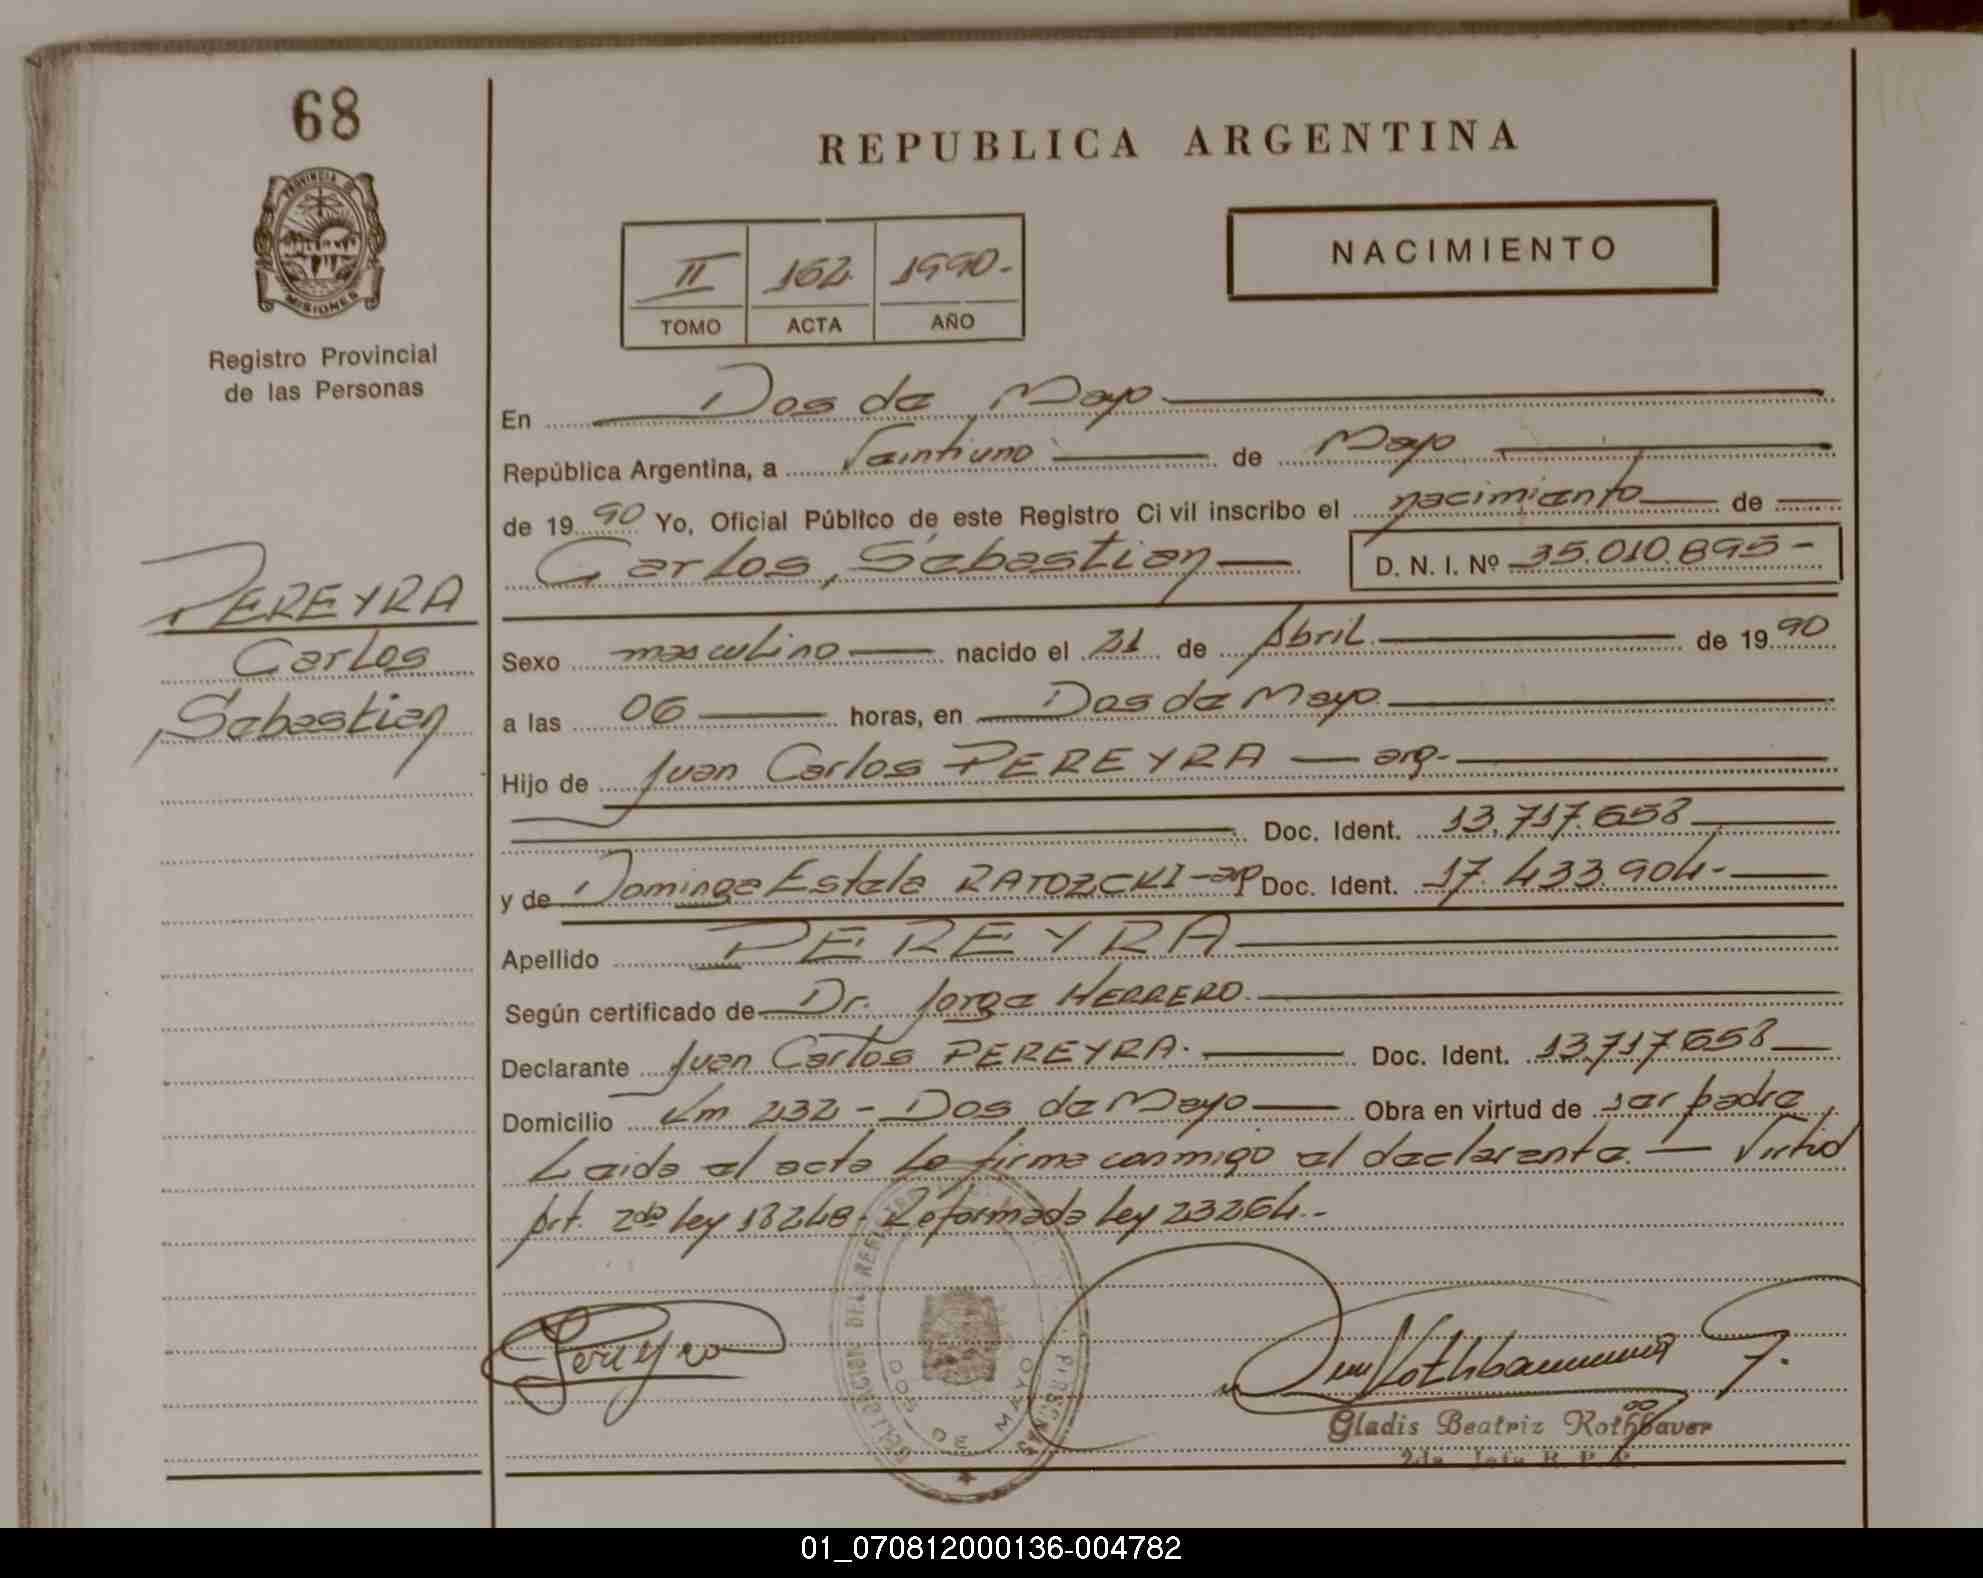 68
PROVINCIA DE
MISIONES
Registro Provincial
de las Personas
PEREYRA
Carlos
Sebastian
REPUBLICA ARGENTINA
II 162 1990.-
TOMO ACTA AÑO
NACIMIENTO
En Dos de Mayo
República Argentina, a Veintiuno de Mayo
de 19 90 Yo, Oficial Público de este Registro Civil inscribo el nacimiento de
Carlos, Sebastian D. N. I. Nº 35.010.895-
Sexo masculino nacido el 21 de Abril. de 19 90
a las 06 horas, en Dos de Mayo.
Hijo de Juan Carlos PEREYRA — arg.-
Doc. Ident. 13.717.658
y de Dominga Estela RATOZCKI - ap Doc. Ident. 17.433.904.-
Apellido PEREYRA
Según certificado de Dr. Jorge HERRERO.
Declarante Juan Carlos PEREYRA. Doc. Ident. 13.717.658
Domicilio Km 232 - Dos de Mayo Obra en virtud de ser padre
Leida el acta la firma conmigo el declarante. — Virtud
Art. 2do Ley 18248. Reformada Ley 23264.-
Pereyra
DELEGACION DEL REG PERSONAS
DOS DE MAYO
Rothbauer
Gladis Beatriz Rothbauer
2da. Jefe R. P. P.
01_070812000136-004782